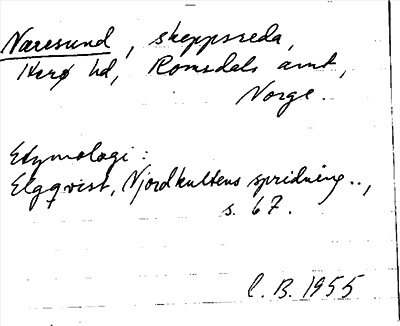 Næresund, skeppsreda,
Herø hd, Romsdals amt,
Norge.
Etymologi:
Elgqvist, Njordkultens spridning..,
s. 67.
C. B. 1955